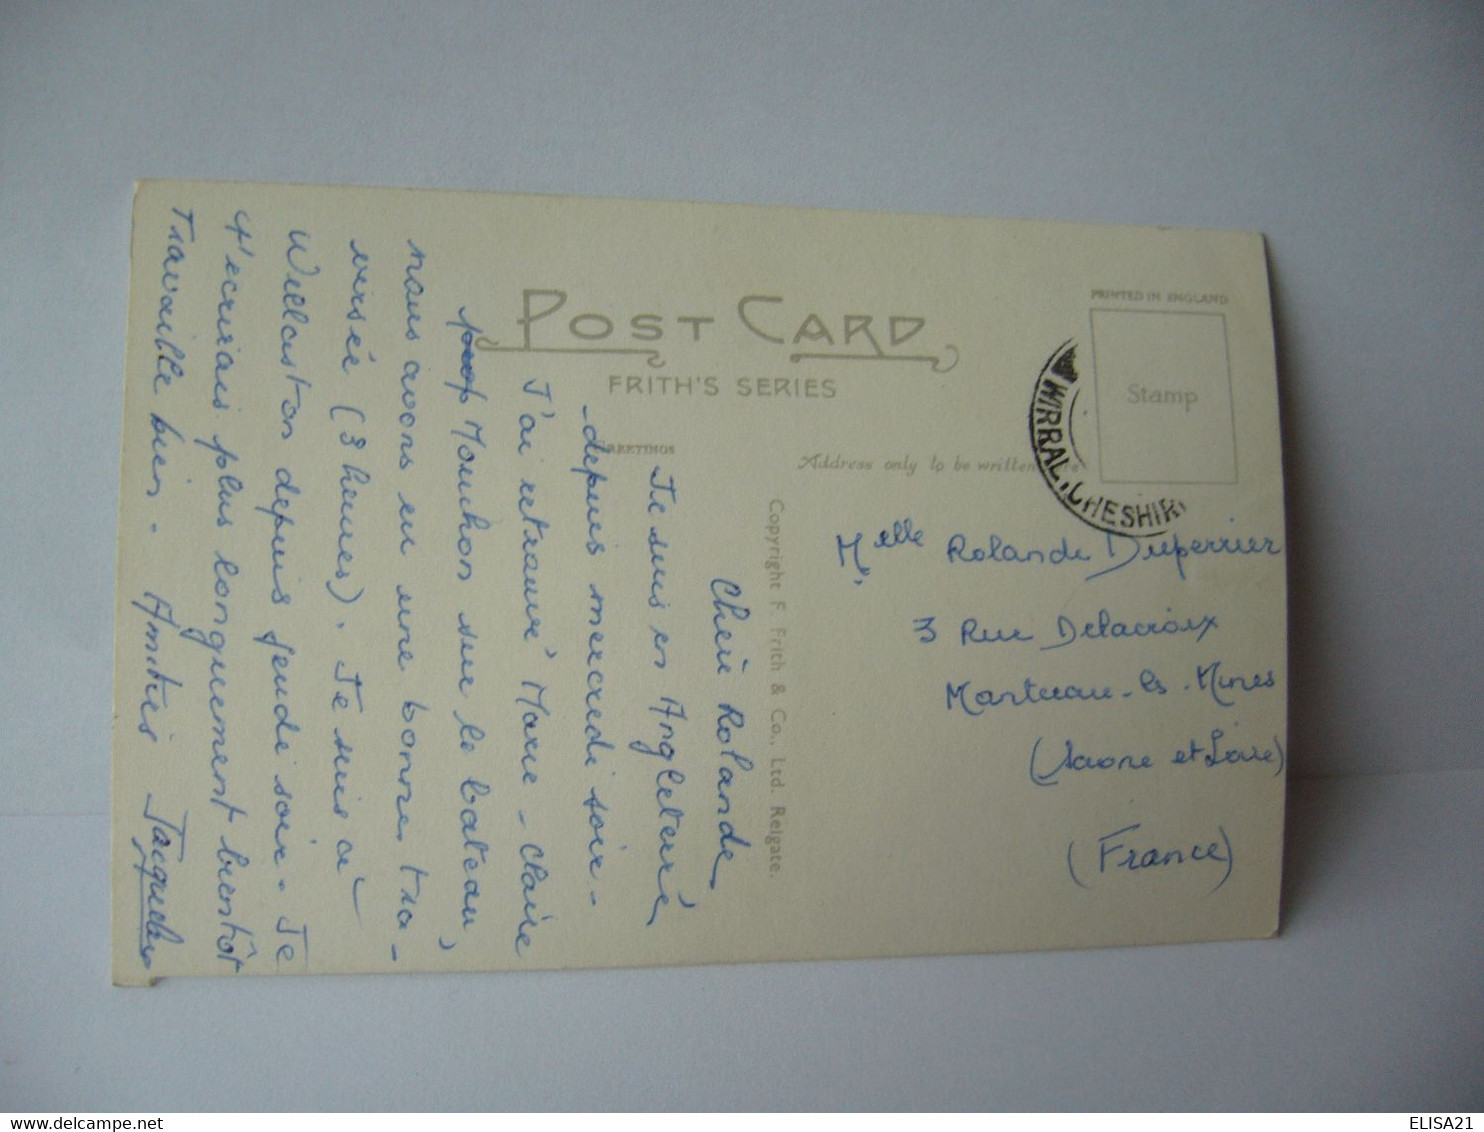 POST CARD
FRITH'S SERIES
PRINTED IN ENGLAND
Stamp
WIRRAL, CHESHIR
GREETINGS
Address only to be written here
Copyright F. Frith & Co., Ltd. Reigate.
Chère Rolande,
Je suis en Angleterre,
depuis mercredi soir -
J'ai retrouvé Marie-Claire
Mouchon sur le bateau,
nous avons eu une bonne tra-
versée (3 heures). Je suis à
Willaston depuis jeudi soir. Je
t'ecrirais plus longuement bientôt
Travaille bien. Amitiés Jacqueline
Melle Rolande Duperrier
3 Rue Delacroix
Montceau-les-Mines
(Saone et Loire)
(France)
ELISA21